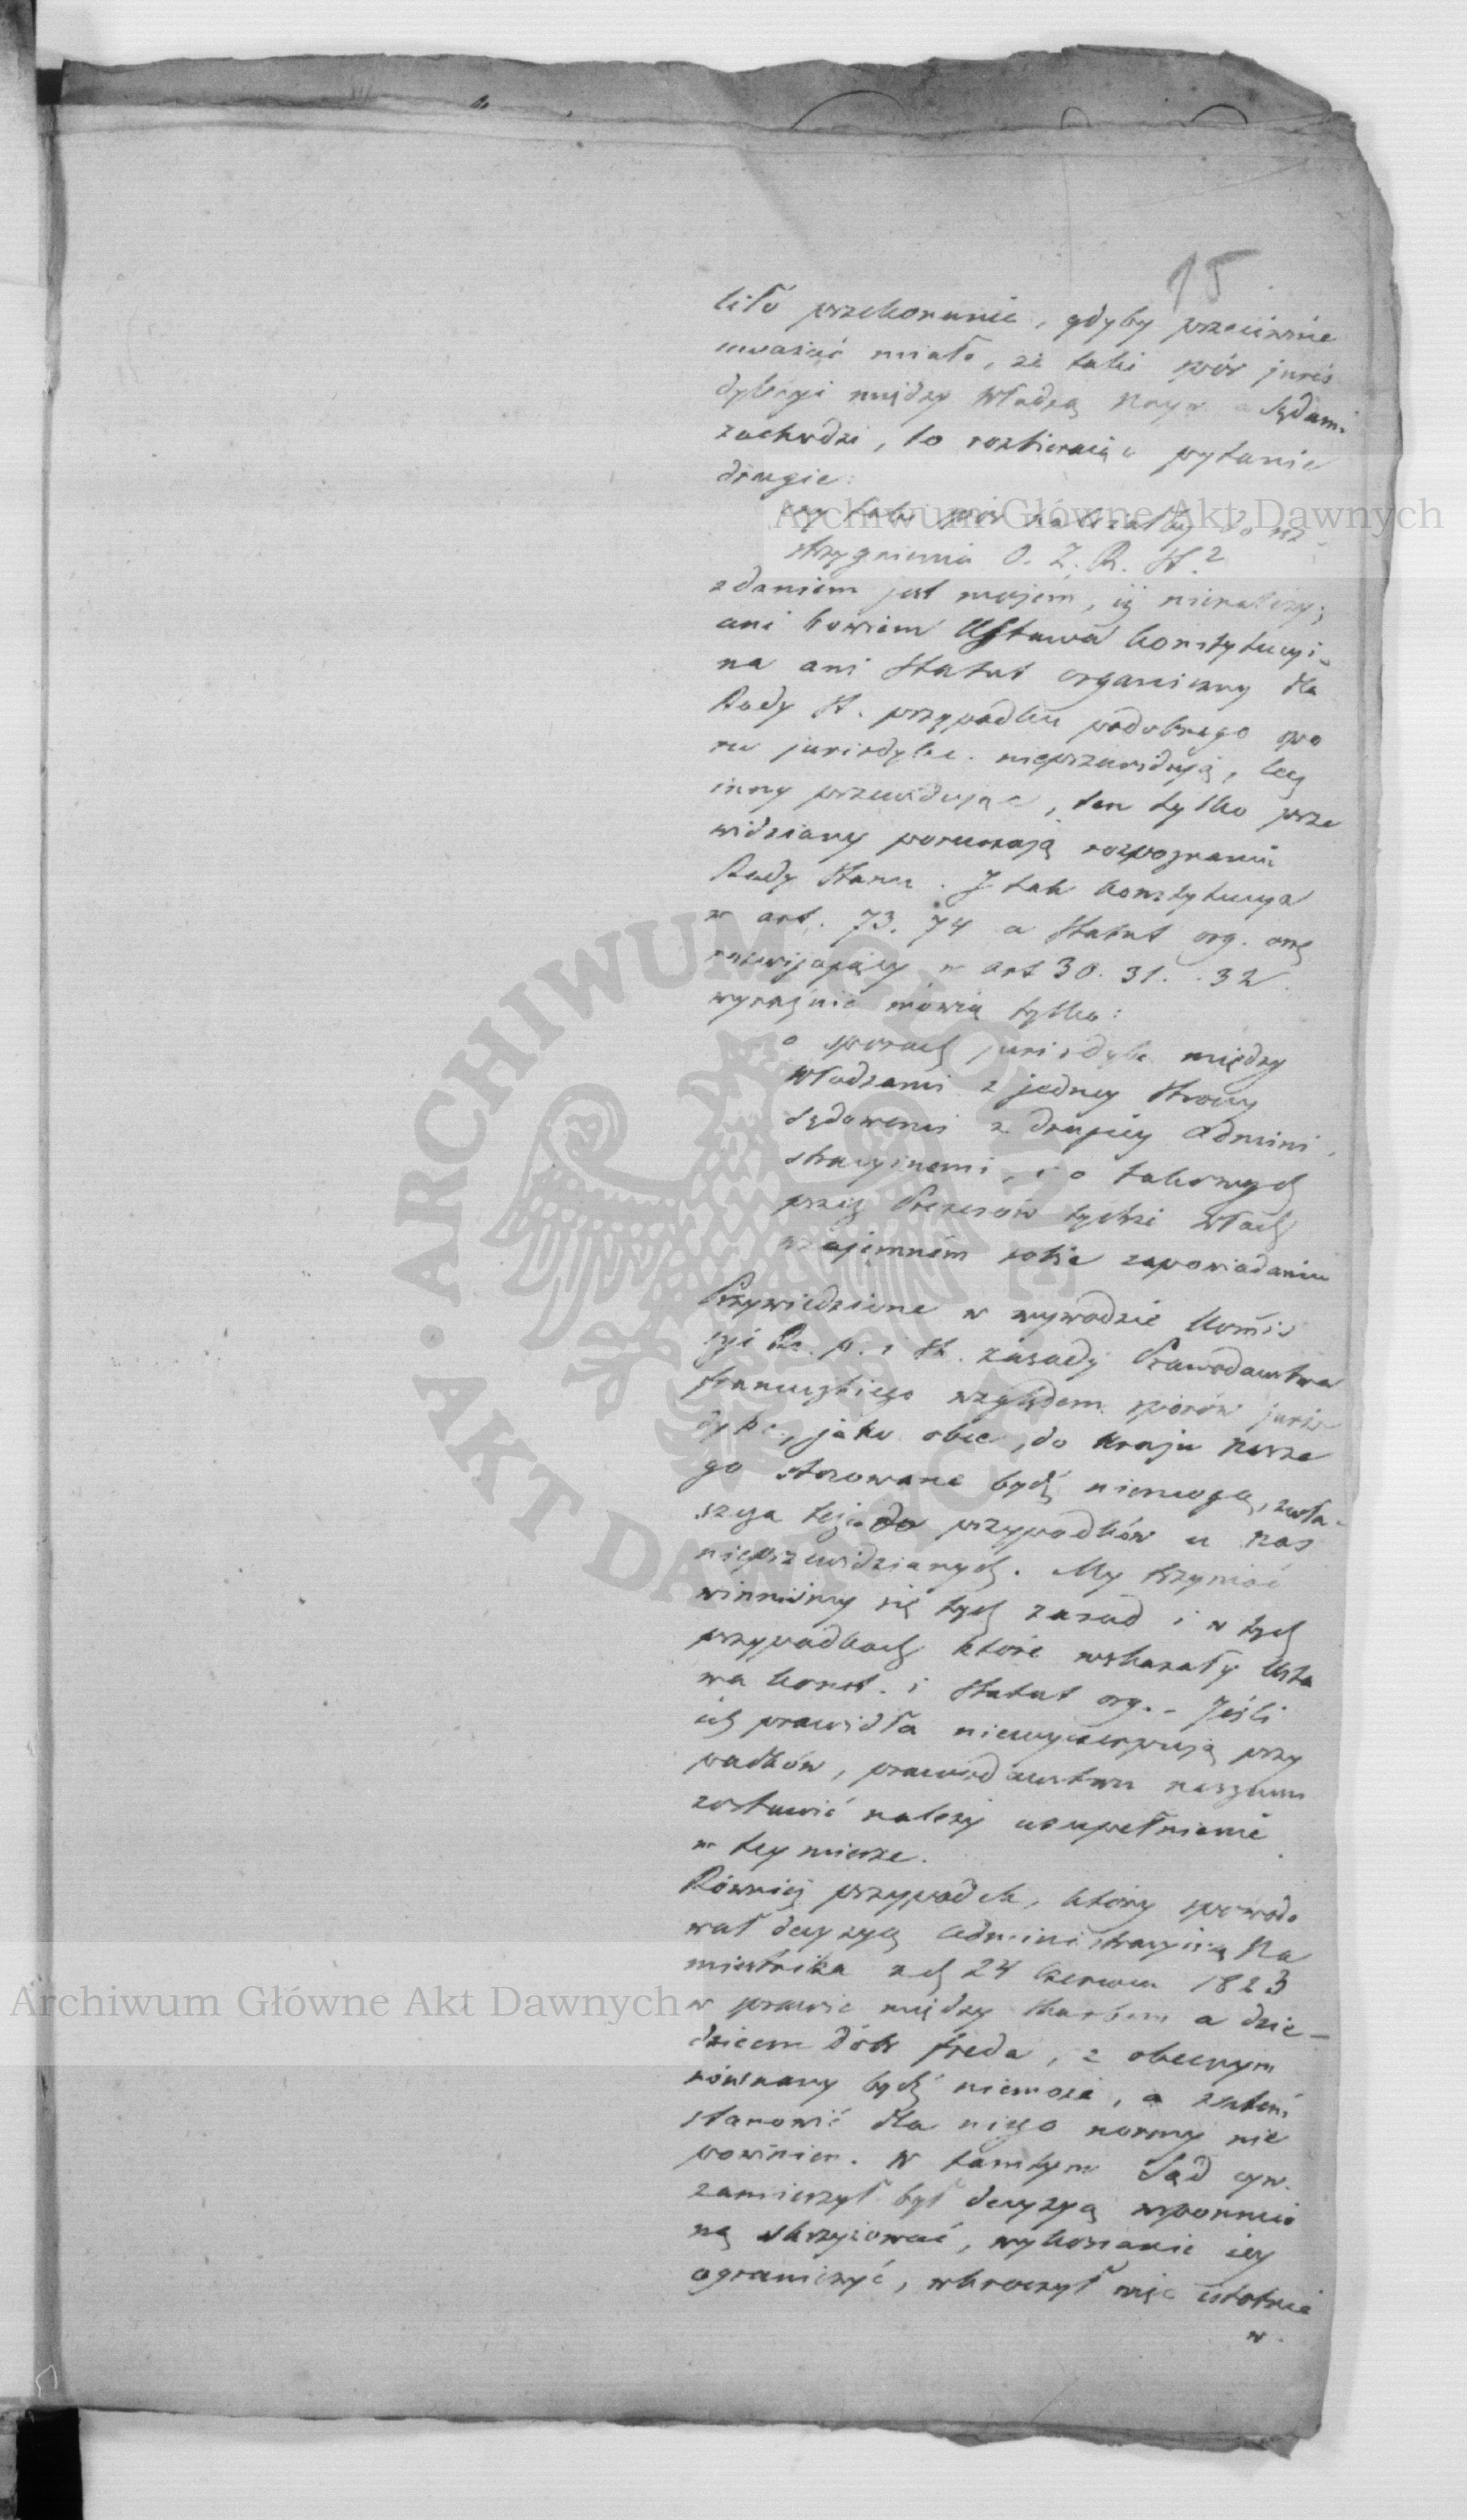 15
liło przekonanie, gdyby przeciwnie
uważać miało, że taki spór juris
dykcyi między Władzą Nayw a Sądami
zachodzi, to rozbierając pytanie
drugie:
czy taki spór należałby do roz-
strzygnienia O. Z. R. St.?
zdaniem jest mojem, iż nienależy;
ani bowiem Ustawa konstytucyi-
na ani Statut organiczny dla
Rady St. przypadku podobnego spo
ru jurisdykc. nieprzewidują, lecz
inny przewidując, ten tylko prze
widziany poruczają rozpoznaniu
Rady Stanu. J tak konstytucya
w art. 73. 74 a Statut org. onę
rozwijający w art 30. 31. . 32.
wyraźnie mówią tylko:
o sporach jurisdykc między
Władzami z jedney strony
sądowemi z drugiey admini
stracyjnemi, i o takowych
przez Prezesów tychże Władz
wzajemném sobie zapowiadaniu
Przywiedzione w wywodzie Komis
syi Rz. p. i Sk. zasady Prawodawstwa
francuzkiego względem sporów juris
dykc., jako obce, do kraju nasze
go stosowane bydź niemogą, zwła-
szcza też do przypadków u nas
nieprzewidzianych. My trzymać
winniśmy się tych zasad i w tych
przypadkach które wskazały Usta
wa konst. i Statut org. - Jeśli
ich prawidła niewyczerpują przy
padków, prawodawstwu naszemu
zostawić należy uzupełnienie
w tey mierze.
Również przypadek, który spowodo
wał decyzyą administracyiną Na
miestnika z d. 24 Czerwca 1823
w sprawie między Skarbem a dzie-
dzicem dóbr Freda, z obecnym
równany bydź niemoże, a zatém
stanowić dla niego normy nie
powinien. W tamtym Sąd cyw.
zamierzył był decyzyą wspomnio
ną skrzyżować, wykonanie iey
ograniczyć, wkroczył więc istotnie
w.
Archiwum Główne Akt Dawnych
Archiwum Główne Akt Dawnych
ARCHIWUM GŁÓWNE AKT DAWNYCH